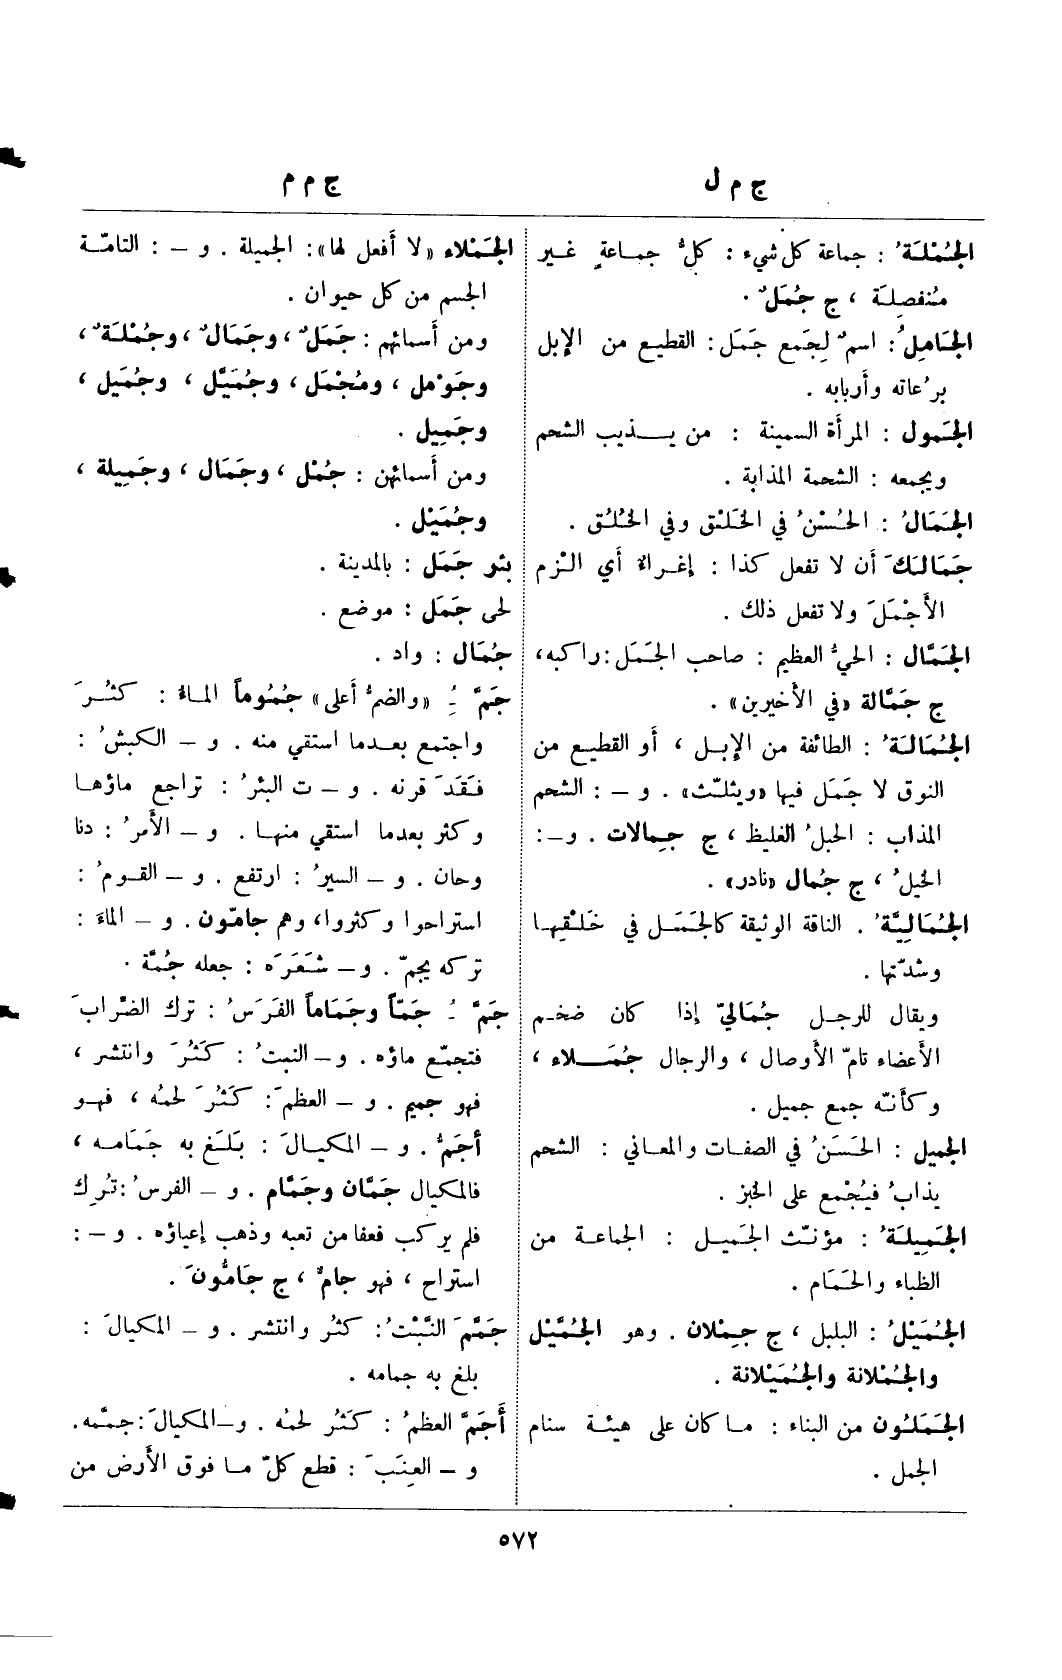 ج م ل
ج م م
الجُمْلَةُ : جماعة كل شيء : كلُّ جماعةٍ غير
مُنفصِلة ، ج جُمَلٌ .
الجَامِلُ : اسمٌ لِجَمع جَمَل : القطيع من الإبل
برُعاته وأربابه .
الجَمول : المرأة السمينة : من يذيب الشحم
ويجمعه : الشحمة المذابة .
الجَمَالُ : الحُسْنُ في الخَلْق وفي الخُلُق .
جَمَالَكَ أن لا تفعل كذا : إغراءٌ أي الزم
الأَجْمَلَ ولا تفعل ذلك .
الجَمَّال : الحيُّ العظيم : صاحب الجَمَل : راكبه ،
ج جَمَّالة «في الأخيرين» .
الجُمَالَةُ : الطائفة من الإبل ، أو القطيع من
النوق لا جَمَل فيها «ويثلّث» . و – : الشحم
المذاب : الحبلُ الغليظ ، ج جمالات . و – :
الخيلُ ، ج جُمال «نادر» .
الجُمَالِيَّةُ . الناقة الوثيقة كالجَمَل في خَلْقِها
وشدّتها .
ويقال للرجل جُمَاليّ إذا كان ضخم
الأعضاء تامّ الأوصال ، والرجال جُمَلاء ،
وكأنّه جمع جميل .
الجميل : الحَسَنُ في الصفات والمعاني : الشحم
يذابُ فيُجْمع على الخبز .
الجَمِيلَةُ : مؤنّث الجَميل : الجماعة من
الظباء والحَمَام .
الجُمَيْلُ : البلبل ، ج جِمْلان . وهو الجُمَّيْل
والجُمْلانة والجُمَيْلانة .
الجَمَلون من البناء : ما كان على هيئة سنام
الجمل .
الجَمْلاء «لا أفعل لها» : الجميلة . و – : التامّة
الجسم من كل حيوان .
ومن أسمائهم : جَمَلٌ ، وجَمَالٌ ، وجُمْلَةٌ ،
وجَوْمل ، ومُجْمَل ، وجُمَيَّل ، وجُمَيل ،
وجَمِيل .
ومن أسمائهن : جُمْل ، وجَمَال ، وجَمِيلة ،
وجُمَيْل .
بئر جَمَل : بالمدينة .
لحى جَمَل : موضع .
جُمَال : واد .
جَمَّ ـُِ «والضمُّ أعلى» جُمُوماً الماءُ : كثُرَ
واجتمع بعدما استقي منه . و – الكبشُ :
فَقَدَ قرنه . و – ت البئرُ : تراجع ماؤها
وكثر بعدما استقي منها . و – الأمرُ : دنا
وحان . و – السيرُ : ارتفع . و – القومُ :
استراحوا وكثروا ، وهم جامّون . و – الماءَ :
تركه يجمّ . و – شَعَرَه : جعله جُمَّة .
جَمَّ ـُ جَمّاً وجَمَاماً الفَرَسُ : ترك الضرابَ
فتجمّع ماؤه . و – النبتُ : كثُرَ وانتشر ،
فهو جميم . و – العظمَ : كثُرَ لحمُه ، فهو
أجَمُّ . و – المكيالَ : بَلَغ به جَمَامه ،
فالمكيال جَمَّان وجَمَّام . و – الفرسُ : تُرِك
فلم يركب فعفا من تعبه وذهب إعياؤه . و – :
استراح ، فهو جامٌ ، ج جَامُّونَ .
جَمَّمَ النَّبْتُ : كثُر وانتشر . و – المكيالَ :
بلغ به جمامه .
أَجَمَّ العظمُ : كثُر لحمُه . و – المكيالَ : جمَّمه .
و – العِنَبَ : قطع كلّ ما فوق الأرض من
٥٧٢